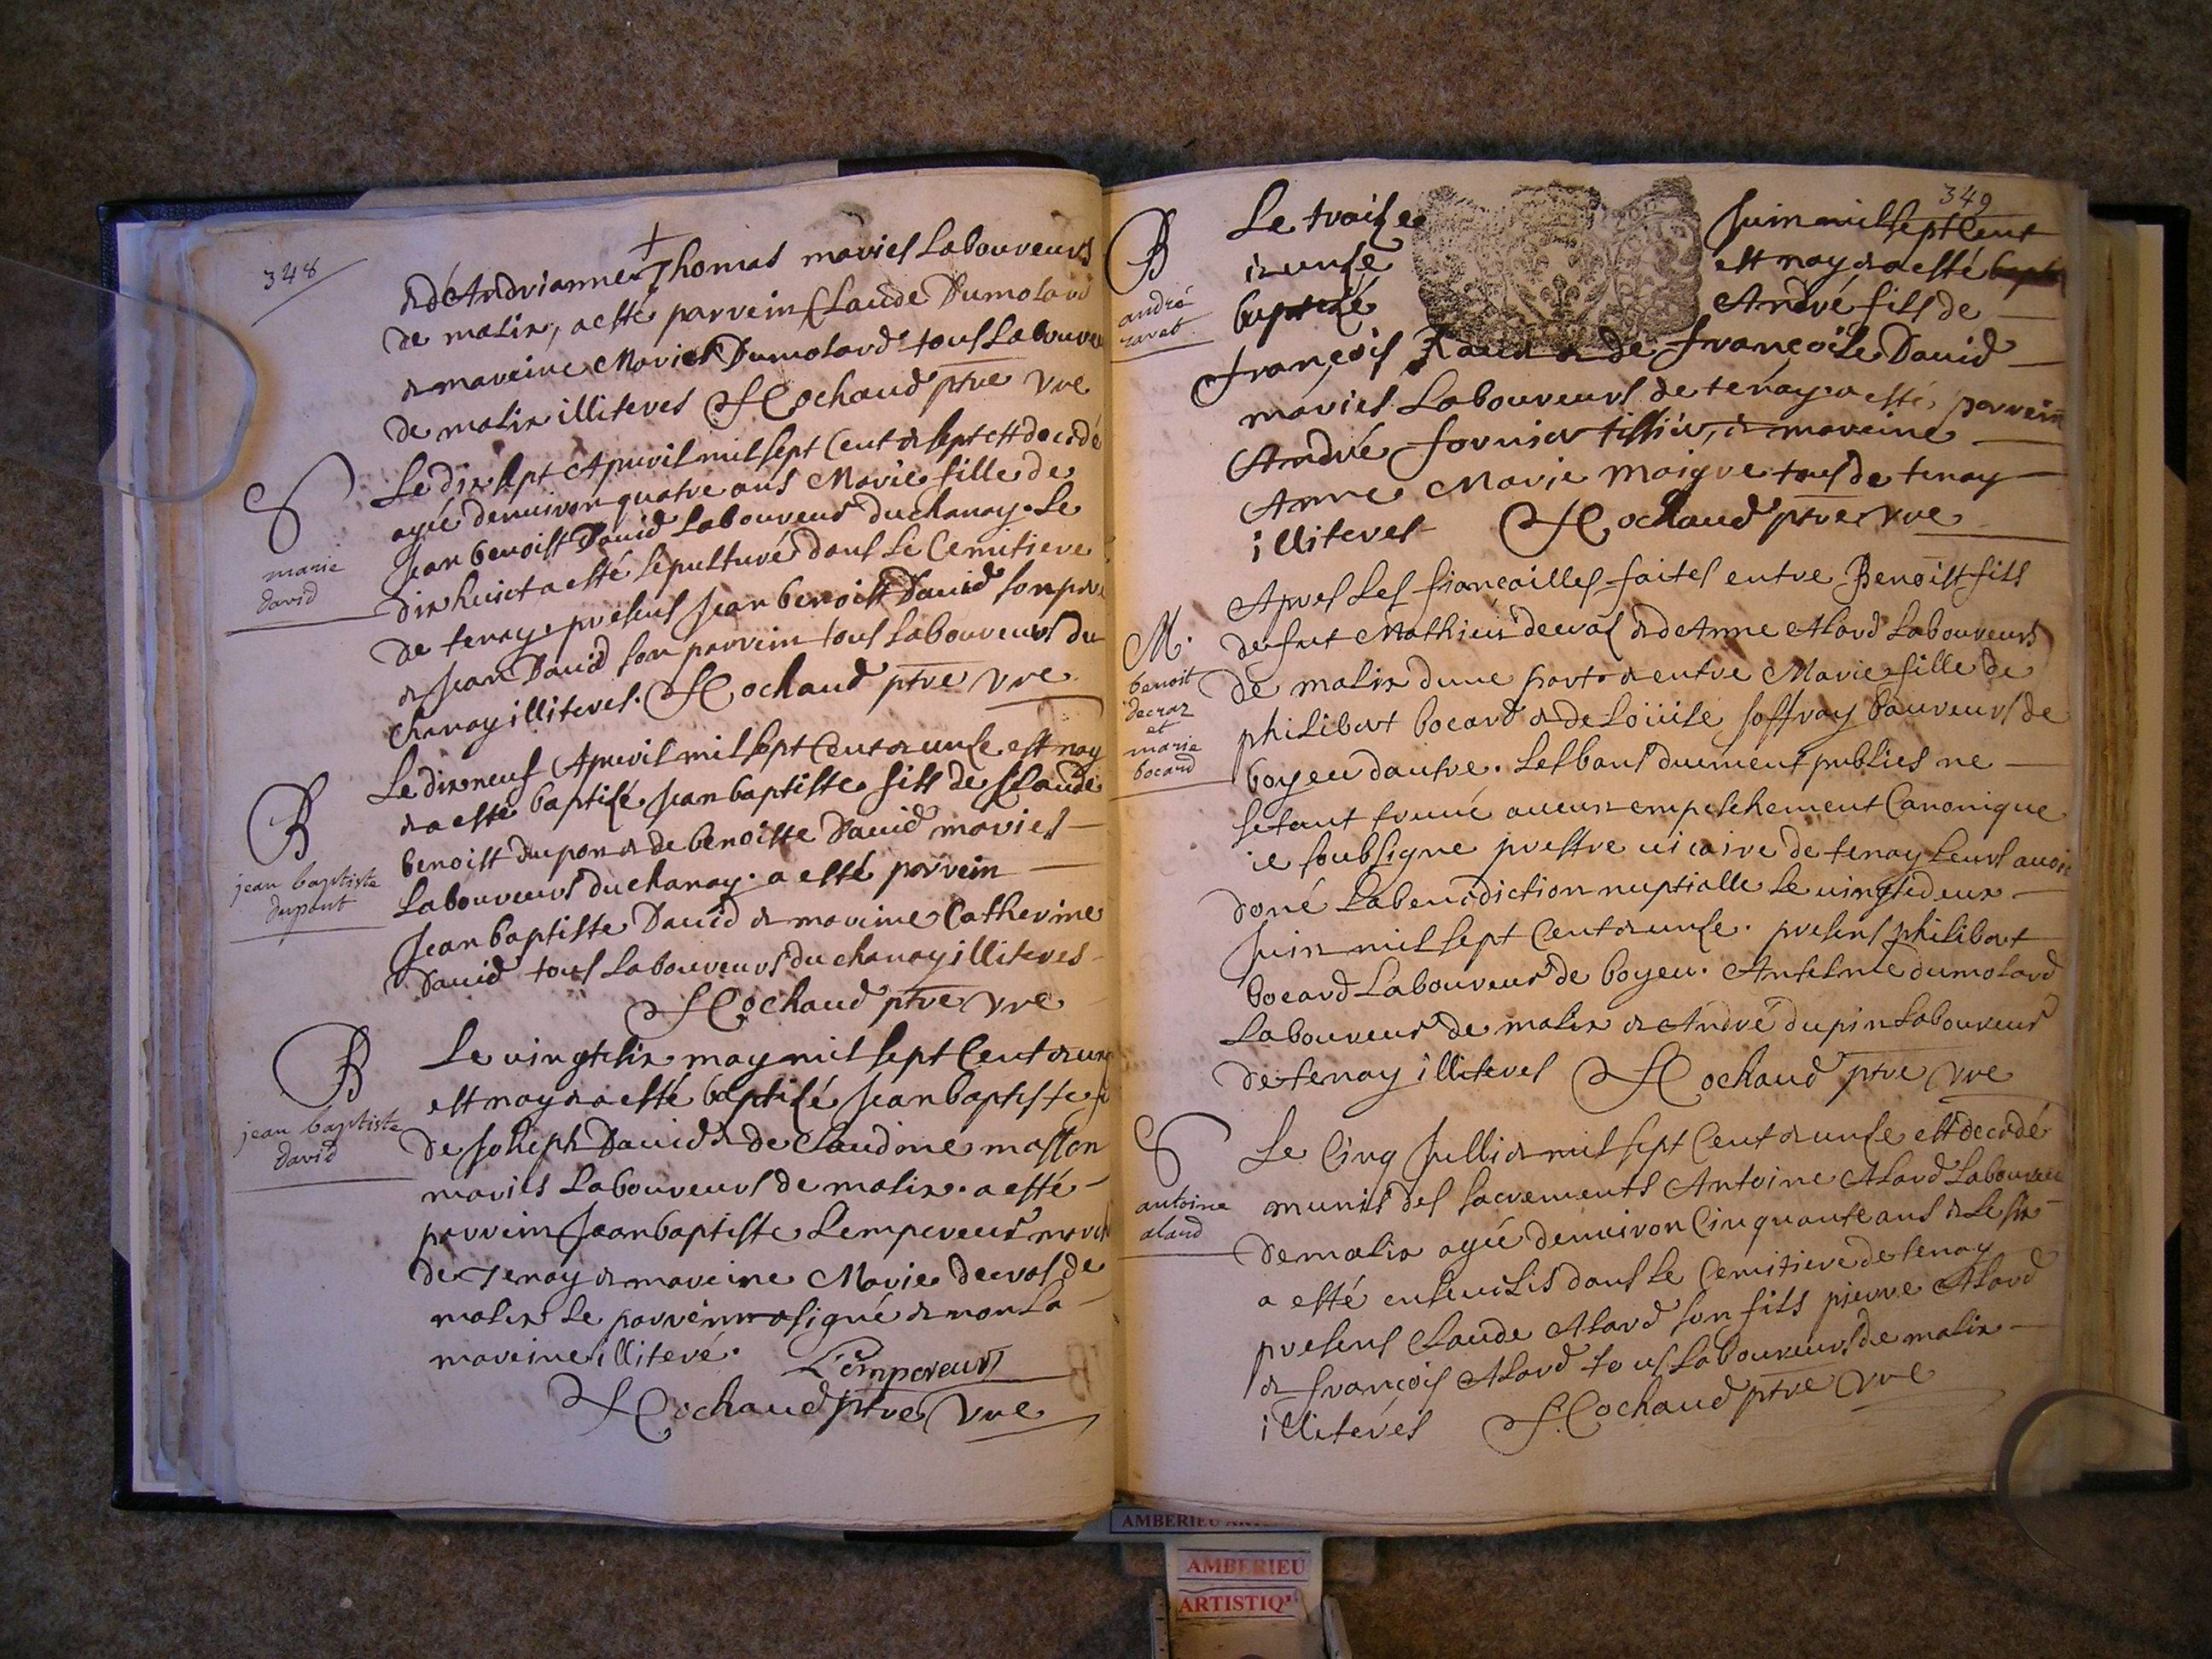 348
& de Andrianne Thomas mariés Laboureurs
de malix, a esté parrein Claude Dumolard
& mareine Marie Dumolard tous Laboureu
de malix illiterés Cochaud ptre vre
S
marie
david
Le dix sept Apuril mil sept Cent & sept est decedé
agée denuiron quatre ans Marie fille de
Jean benoist Dauid Laboureur du chanay. Le
dix huict a esté sepulturé dans Le Cemitiere
de tenay. presens Jean benoist Dauid son pere
& Jean Dauid son parrein tous Laboureurs du
Chanay illiterés. Cochaud ptre vre
B
jean baptiste
dupont
Le dix neuf Apuril mil sept Cent & unse est nay
& a esté baptisé Jean baptiste fils de Claude
benoist dupon & de benoiste Dauid mariés
Laboureurs du chanay. a esté parrein
Jean baptiste Dauid & mareine Catherine
Dauid tous Laboureurs du chanay illiterés
Cochaud ptre vre
B
jean baptiste
david
Le uingt six may mil sept Cent & uns
est nay & a esté baptisé Jean baptiste fi
de Joseph Dauid & de Claudine masson
mariés Laboureurs de malix. a esté
parrein Jean baptiste Lempereur march
de Tenay & mareine Marie decras de
malix Le parrein a signé & non La
mareine illiteré.
L'empereur
Cochaud ptre vre
349
B
andré
ravat
Le traise Juin mil sept Cent
& unse est nay & a esté
baptisé André fils de
François & de Françoise Dauid
mariés Laboureurs de tenay. a esté parrein
André fornier tissier, & mareine
Anne Marie maigre tous de tenay
illiterés Cochaud ptre vre
M.
benoit
decraz
et
marie
bocard
Apres Les fiançailles faites entre Benoist fils
de fut Mathieu decras & de Anne Alard Laboureurs
de malix dune part & entre Marie fille de
philibert bocard & de Loüise Joffray Laureurs de
boyeu dautre. Les bans duement publiés ne
setant trouué aucun empeschement Canonique
ie soubsigné prestre uicaire de tenay Leurs auoir
doné La benediction nuptialle Le uingtedeux
Juin mil sept Cent & unse. presens philibert
bocard Laboureur de boyeu. Antelme dumolard
Laboureur de malix & André dupin Laboureur
de tenay illiterés Cochaud ptre vre
S
antoine
alard
Le Cinq Jullie mil sept Cent & unse est decedé
munis des sacrements Antoine Alard Laboureu
de malix agé denuiron Cinquante ans & Le six
a esté enseuelis dans Le Cemitiere de tenay
presens Claude Alard son fils pierre Alard
& françois Alard tous Laboureurs de malix
illiterés Cochaud ptre vre
AMBERIEU
AMBERIEU
ARTISTIQ